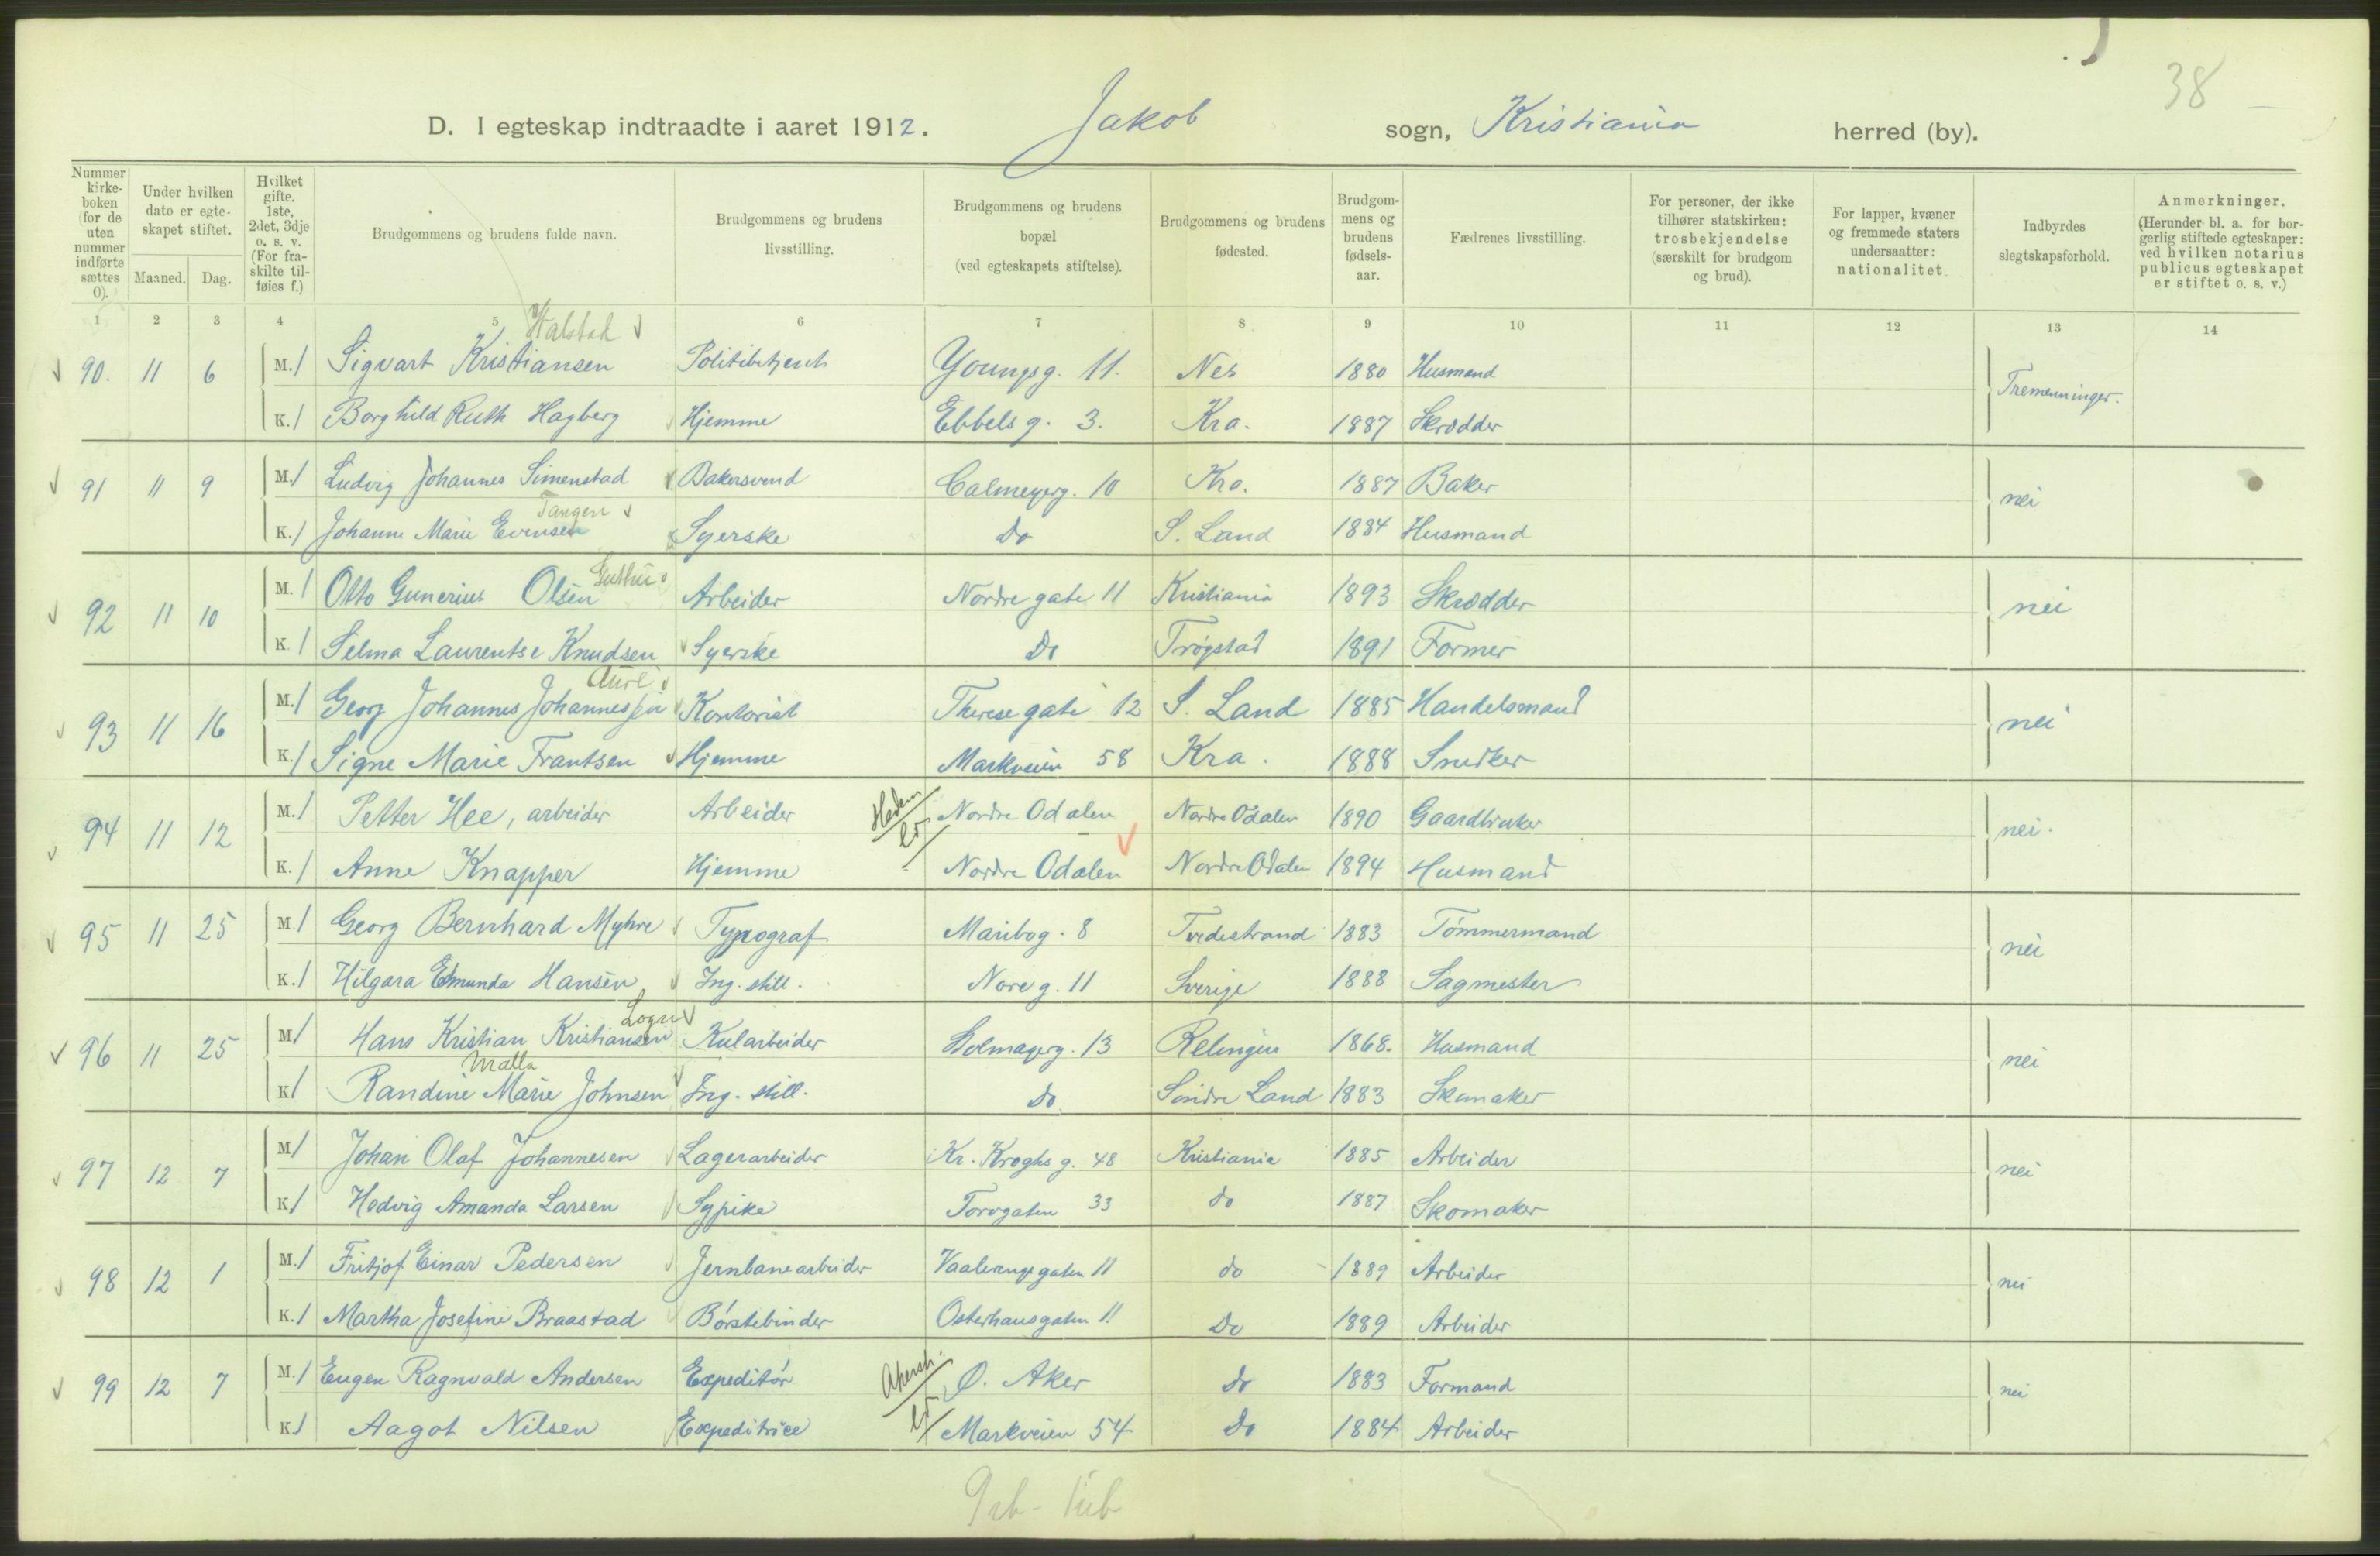 38
D. I egteskap indtraadte i aaret 1912. Jakob sogn, Kristiania herred (by).
Nummer kirke-boken (for de uten nummer indførte sættes 0).
Under hvilken dato er egte-skapet stiftet.
Maaned. Dag.
Hvilket gifte. 1ste, 2det, 3dje o. s. v. (For fra-skilte til-føies f.)
Brudgommens og brudens fulde navn.
Brudgommens og brudens livsstilling.
Brudgommens og brudens bopæl (ved egteskapets stiftelse).
Brudgommens og brudens fødested.
Brudgom-mens og brudens fødsels-aar.
Fædrenes livsstilling.
For personer, der ikke tilhører statskirken: trosbekjendelse (særskilt for brudgom og brud).
For lapper, kvæner og fremmede staters undersaatter: nationalitet.
Indbyrdes slegtskapsforhold.
Anmerkninger. (Herunder bl. a. for bor-gerlig stiftede egteskaper: ved hvilken notarius publicus egteskapet er stiftet o. s. v.)
1 2 3 4 5 6 7 8 9 10 11 12 13 14
90. 11 6 M. / Sigvart Kristiansen Politibetjent Youngsg. 11. Nes 1880 Husmand Tremenninger.
K. / Borghild Ruth Hagberg Hjemme Ebbels g. 3. Kra. 1887 Skrædder
91 11 9 M. / Ludvig Johannes Simenstad Bakersvend Calmeyerg. 10 Kra. 1887 Baker nei
Tangen
K. / Johanne Marie Evensen Syerske Do S. Land 1884 Husmand
92 11 10 M. / Otto Gunerius Olsen Arbeider Nordre gate 11 Kristiania 1893 Skrædder nei
K. / Selma Laurentse Knudsen Syerske Do Trøgstad 1891 Former
93 11 16 M. / Georg Johannes Johannessen Kontorist Therese gate 12 S. Land 1885 Handelsmand nei
K. / Signe Marie Frantsen Hjemme Markveien 58 Kra. 1888 Snedker
94 11 12 M. / Petter Hee, arbeider Arbeider Hedm Nordre Odalen Nordre Odalen 1890 Gaardbruker nei.
K. / Anne Knapper Hjemme Nordre Odalen Nordre Odalen 1894 Husmand
95 11 25 M / Georg Bernhard Myhre Typograf Maribog. 8 Tvedestrand 1883 Tømmermand nei
K. / Hilgara Edmunda Hansen Ing. still. Nore g. 11 Sverige 1888 Sagmester
Logn
96 11 25 M / Hans Kristian Kristiansen Kularbeider 13 Relingen 1868. Husmand nei
Malla
K / Randine Marie Johnsen Ing. still. Do Søndre Land 1883 Skomaker
97 12 7 M / Johan Olaf Johannesen Lagerarbeider Kr. Kroghs g. 48 Kristiania 1885 Arbeider nei
K / Hedvig Amanda Larsen Sypike Torvgaten 33 do 1887 Skomaker
98 12 1 M. / Fritjof Einar Pedersen Jernbanearbeider Vaalerengegaten 11 do 1889 Arbeider nei
K. / Martha Josefine Braastad Børstebinder Osterhausgaten 11 Do 1889 Arbeider
99 12 7 M. / Eugen Ragnvald Andersen Expeditør Akersh. Ø. Aker do 1883 Formand nei
K / Aagot Nilsen Expeditrice Markveien 54 Do 1884 Arbeider